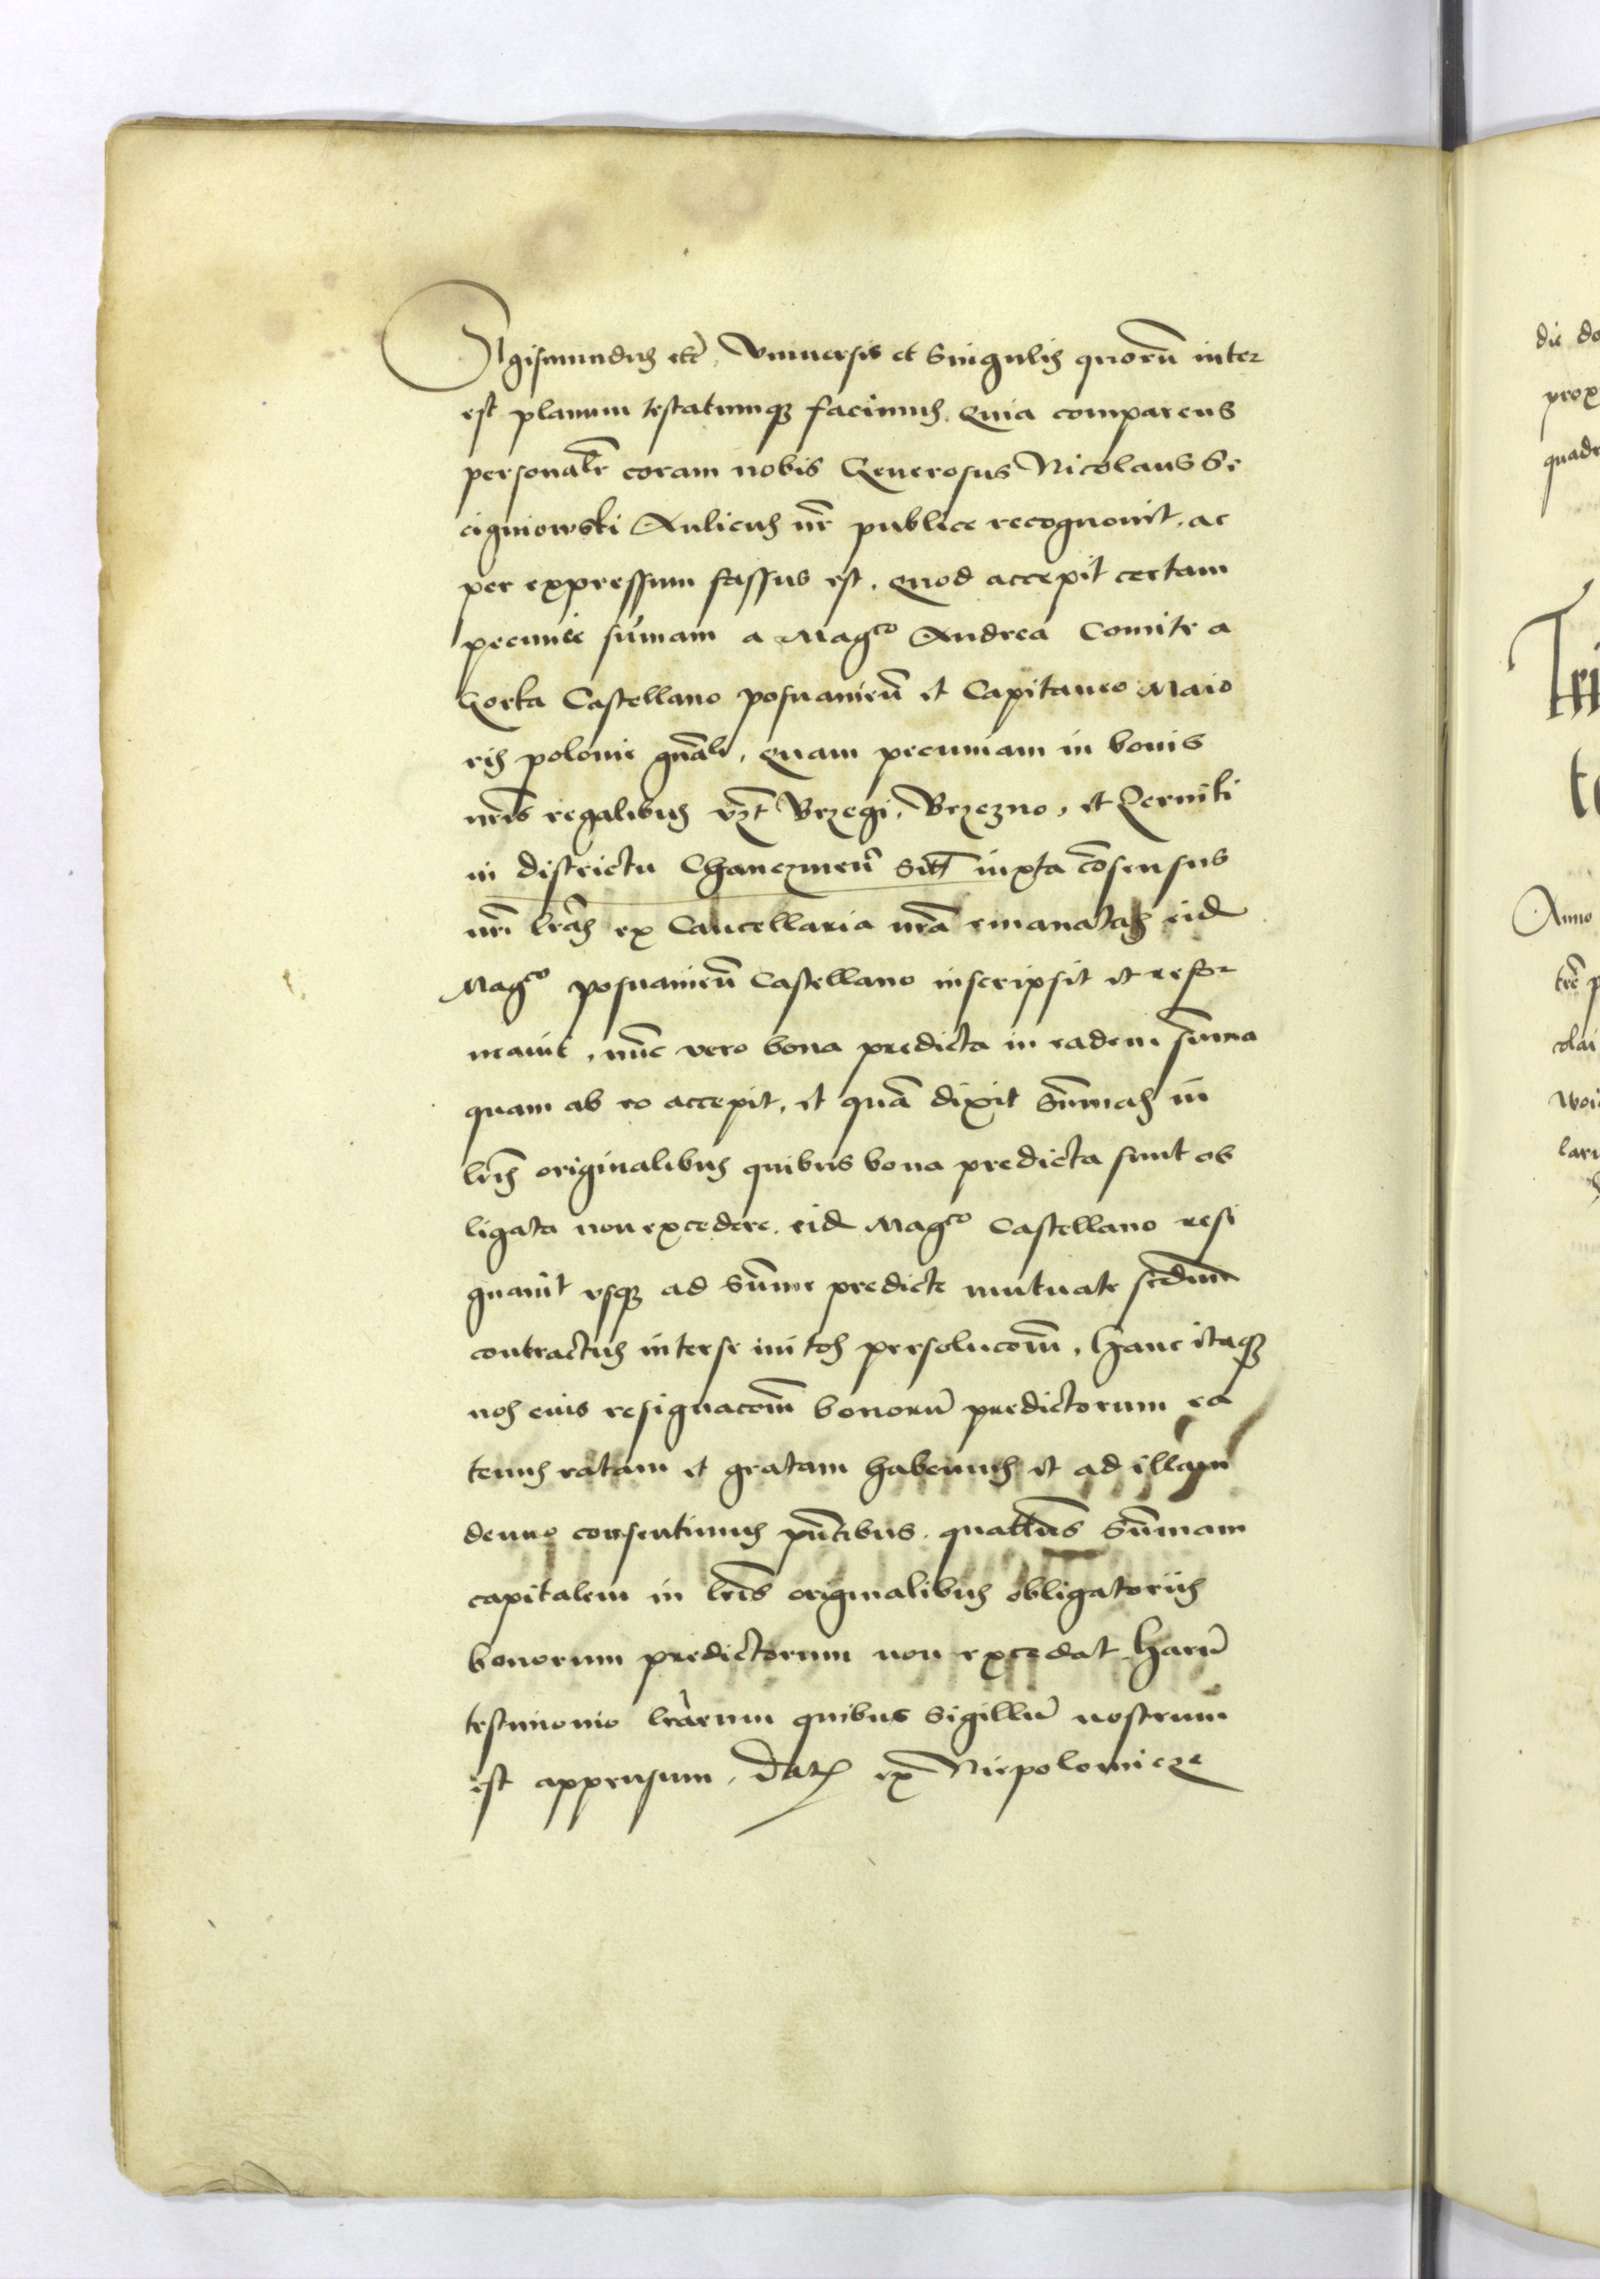 Sigismundus etc̄. Vniuersis et Singulis quorū inter
est planum testatumq3 facimus. Quia comparens
personalr̄ coram nobis Generosus Nicolaus Sr
cigniowski Aulicus nr̄ publice recognouit, ac
per expressum fassus est. Quod accepit certam
pecunie sūmam a Magco Andrea Comite a
Gorka Castellano posnanieñ et Capitaneo Maio
ris polonie gnāli, Quam pecuniam in bonis
nrīs regalibus vzt Brzegi, Brzezno, et Zerniki
in districtu Chanczineñ sitt iuxta cōsensus
nrī lrās ex Cancellaria nrā emanatas eid
Magco posnanieñ Castellano inscripsit et refor
mauit, nūc vero bona predicta in eadem sūma
quam ab eo accepit, et quā dixit Sūmas in
lrīs originalibus quibus bona predicta sunt ob
ligata non excedere. eid Magco Castellano resi
gnauit vsq3 ad Sūme predicte mutuate scdūm
contractus inter se initos persolucōm̄, Hanc itaq3
nos eius resignacōm̄ bonorū predictorum ea
tenus ratam et gratam habemus et ad illam
denuo consentimus pn̄tibus. quatt̄us Sūmam
capitalem in lrīs originalibus obligatoriis
bonorum predictorum non excedat Harū
testimonio lrārum quibus Sigillū nostrum
est appensum. Dat ex Niepolomicze
die do
prox
quadr
Tri
Anno
trē p
olai
woi
lari